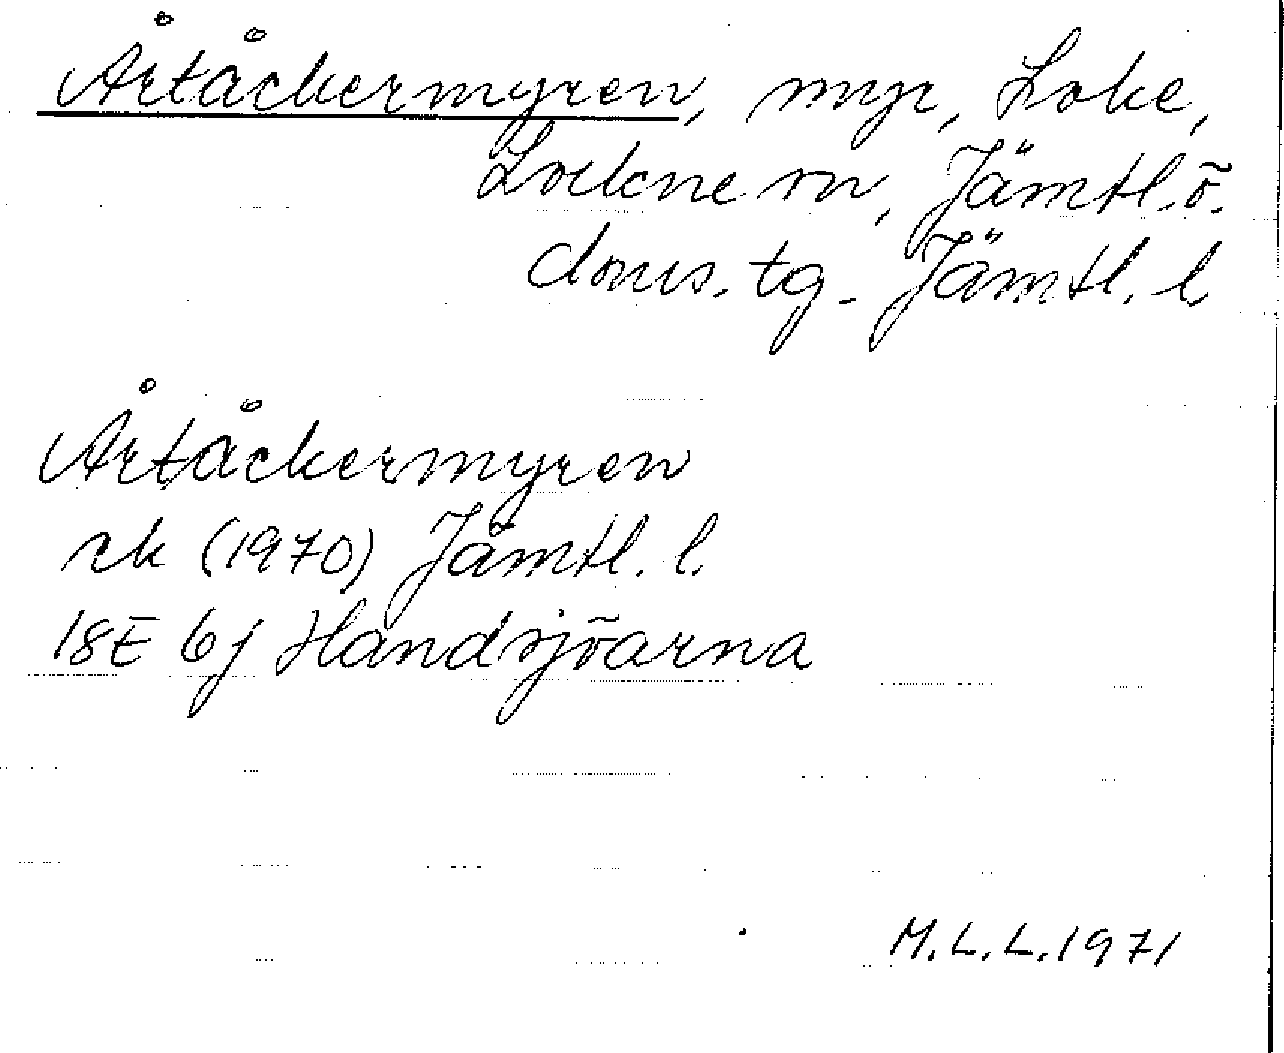 Årtåckermyren, myr, Loke,
Lockne sn, Jämtl. ö.
doms. tg. Jämtl. l
Årtåckermyren
ek (1970) Jämtl. l.
18E 6j Handsjöarna
M.L.L. 1971